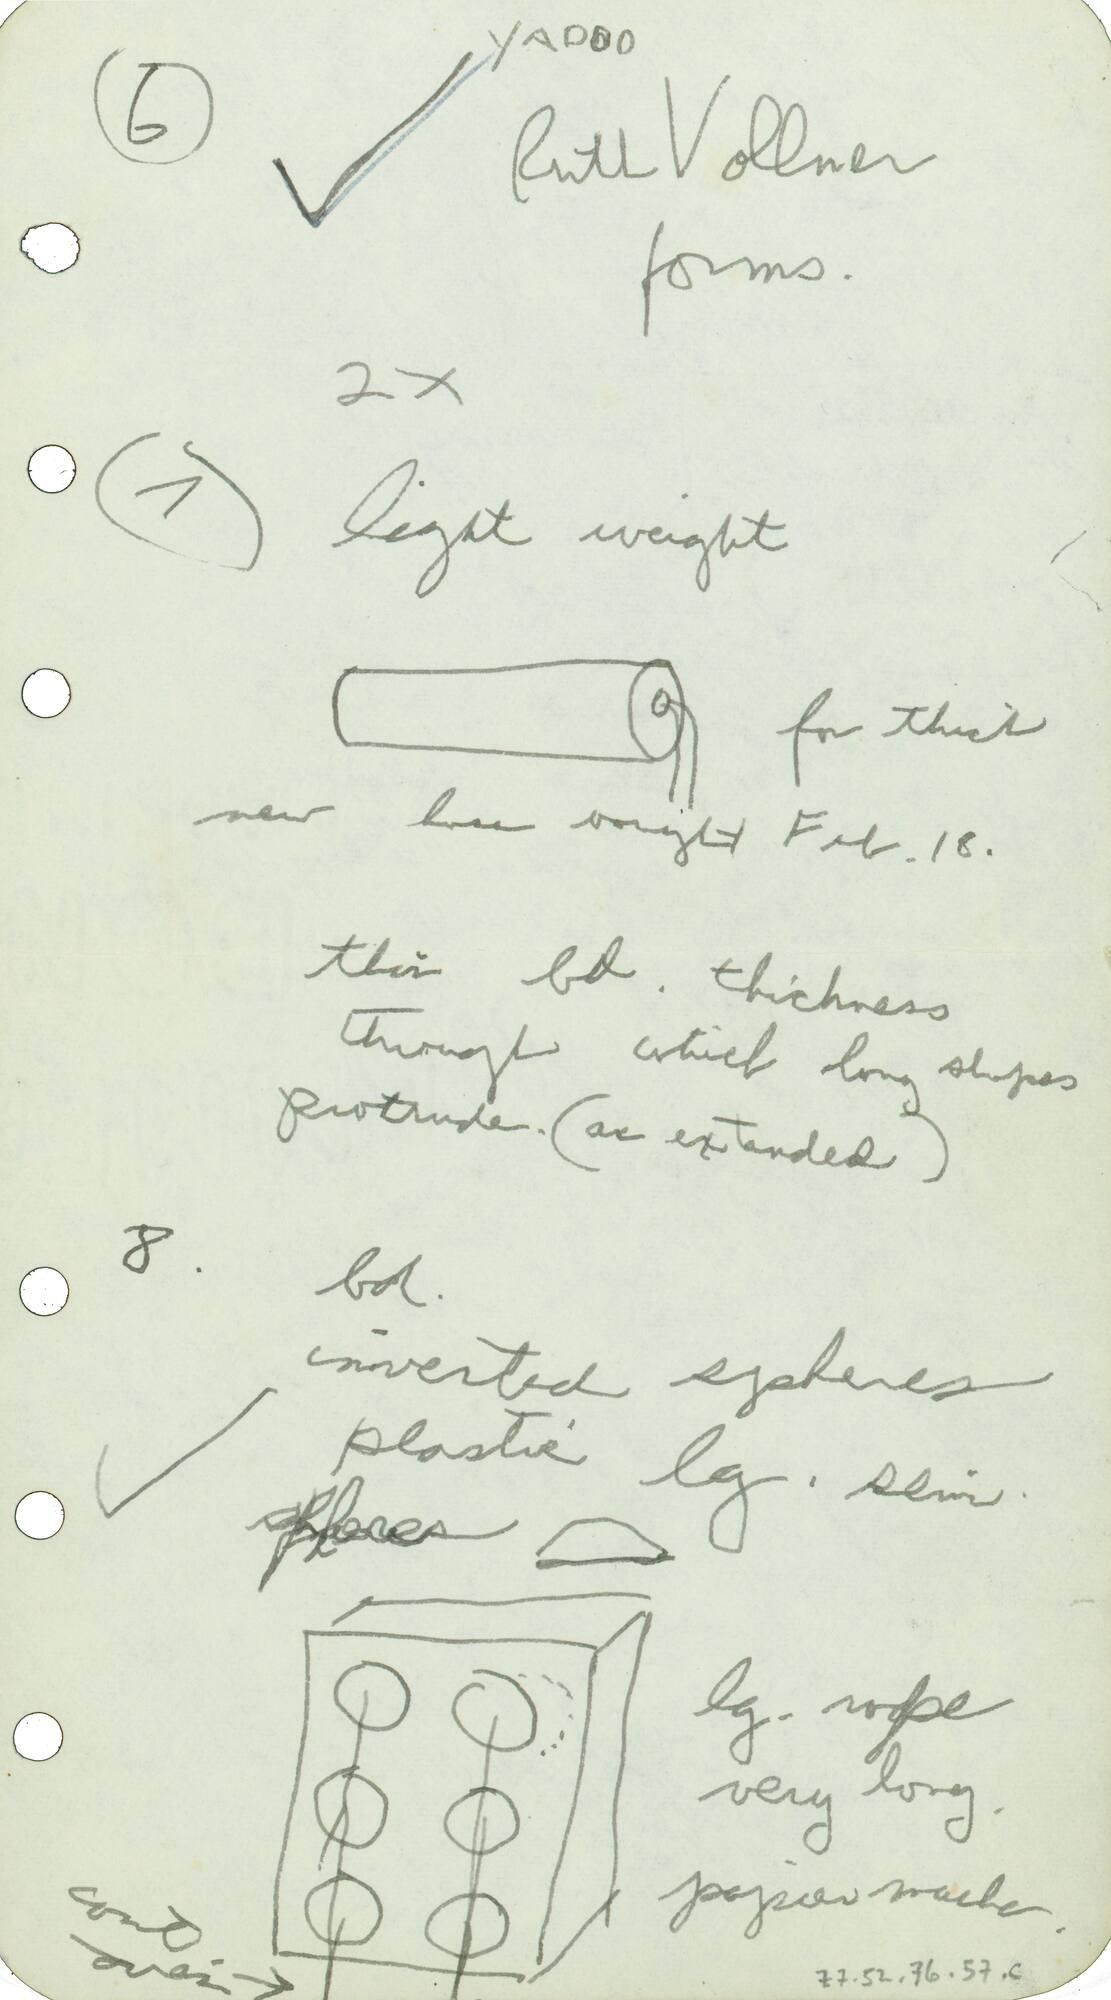 YADDO
6
Ruth Vollmer
forms.
2X
7
light weight
for thick
new hose bought Feb. 18.
thin bd. thickness
through which long shapes
protrude. (as extended)
8.
bd.
inverted spheres
plastic lg. semi.
spheres
lg. rope
very long.
papier mache.
cont
over
77.52.76.57.c